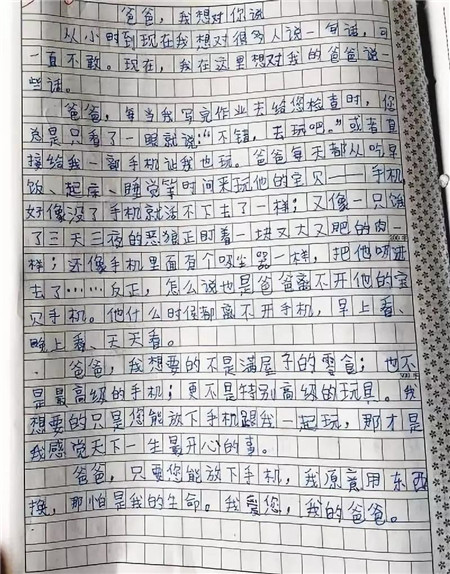 爸爸，我想对你说
从小时到现在我想对很多人说一句话，可
一直不敢。现在，我在这里想对我的爸爸说
些话。
爸爸，每当我写完作业去给您检查时，您
总是只看了一眼就说："不错，去玩吧。"或者直
接给我一部手机让我也玩。爸爸每天都从吃早
饭、起床、睡觉等时间来玩他的宝贝——手机，
好像没了手机就活不下去了一样；又像一只饿
了三天三夜的恶狼正盯着一块又大又肥的肉
300字
样；还像手机里面有个吸尘器一样，把他吸进
去了……反正，怎么说也是爸爸离不开他的宝
贝手机。他什么时候都离不开手机，早上看、
晚上看、天天看。
爸爸，我想要的不是满屋子的零食；也不
是最高级的手机；更不是特别高级的玩具。我
想要的只是您能放下手机跟我一起玩，那才是
我感觉天下一生最开心的事。
爸爸，只要您能放下手机，我原意用东西
换，那怕是我的生命。我爱您，我的爸爸。